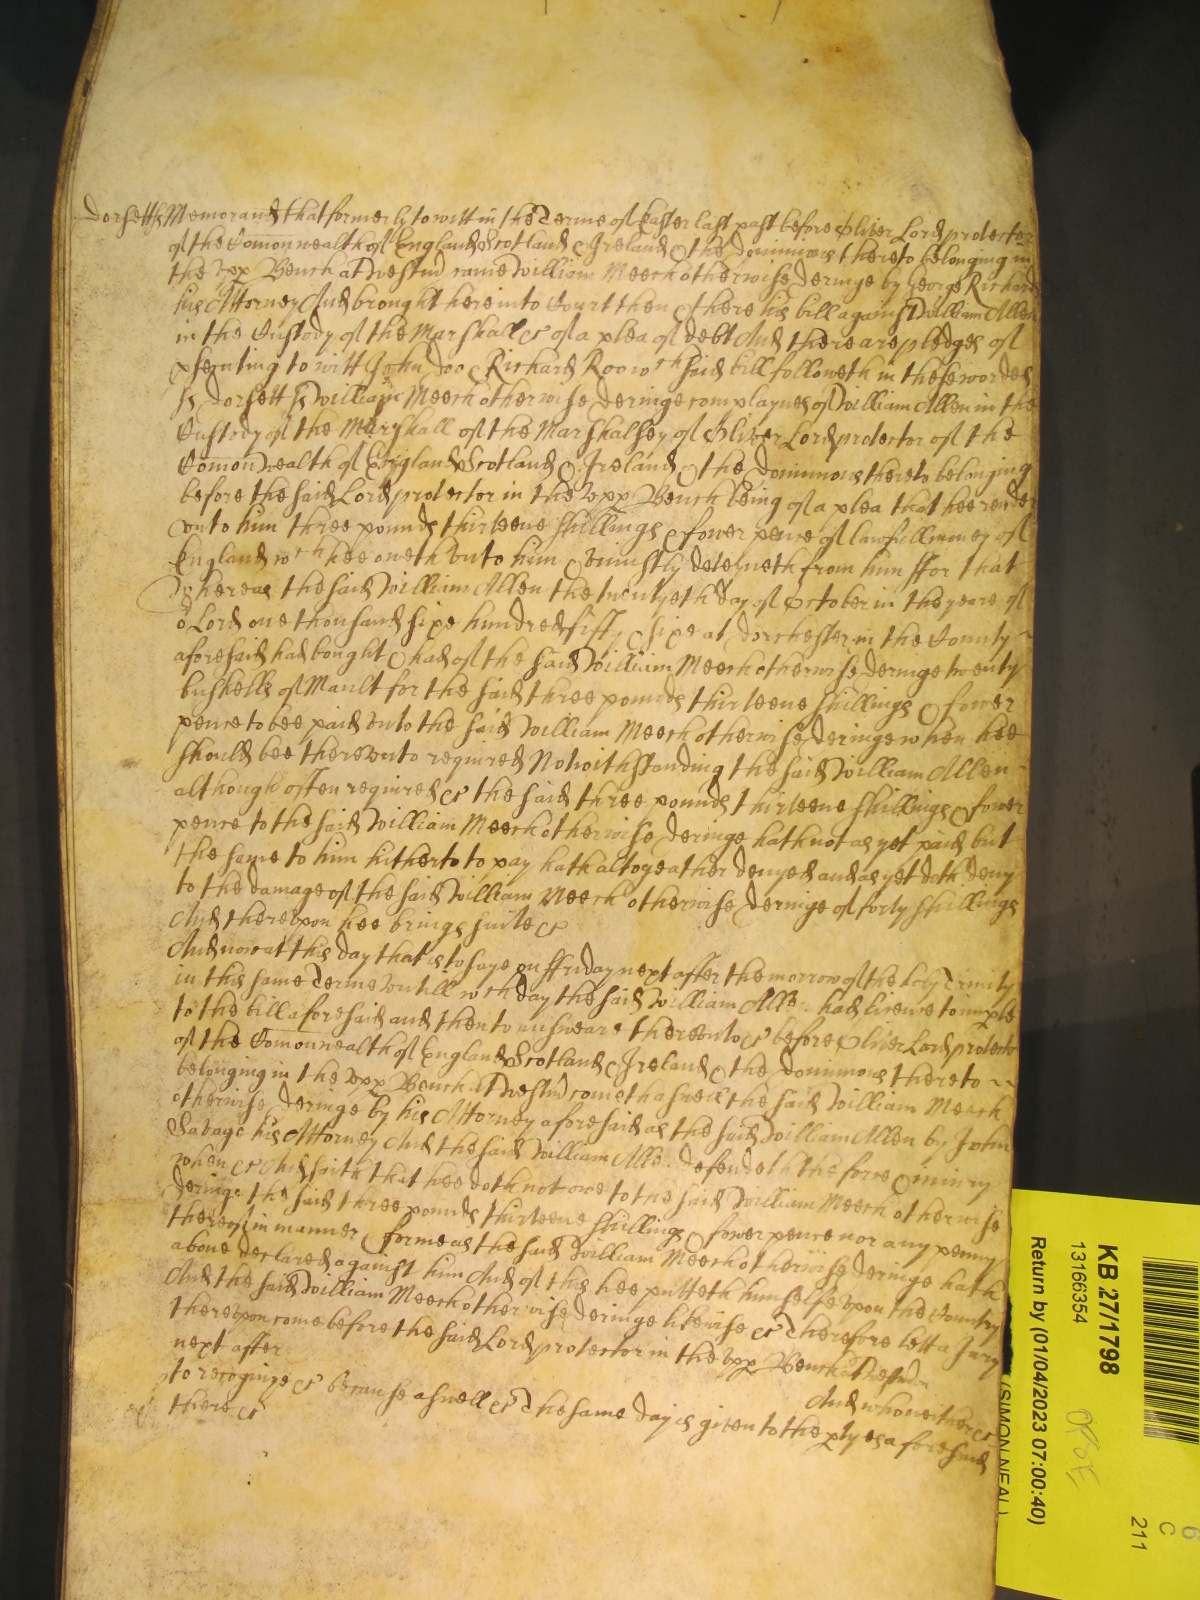 Dorsett ss Memorand that formerly to witt in the Terme of Easter last past before Oliver Lord protector
of the Comonwealth of England Scotland & Ireland & the dominions thereto belonging in
the vpp Bench at Westmr came William Meech otherwise Deringe by George Richards
his Attorney And brought here into Court then & there his bill against William Allen
in the Custody of the Marshall &c of a plea of debt And there are pledges of
psecuting to witt John Doo & Richard Roo wch said bill followeth in these wordes
ss Dorsett ss William Meech otherwise Deringe complaynes of William Allen in the
Custody of the Marshall of the Marshalsey of Oliver Lord protector of the
Comonwealth of England Scotland & Ireland & the dominions thereto belonging
before the said Lord protector in the vpp Bench being of a plea that hee render
vnto him three pounds thirteene shillings & fower pence of lawfull money of
England wch hee oweth vnto him & vniustly deteyneth from him ffor that
Whereas the said William Allen the twentyeth day of October in the yeare of
or Lord one thousand sixe hundred fifty & sixe at Dorchester in the County
aforesaid had bought & had of the said William Meech otherwise Deringe twenty
bushells of Mault for the said three pounds thirteene shillings & fower
pence to bee paid vnto the said William Meech otherwise Deringe when hee
should bee therevnto required Notwithstanding the said William Allen
although often required &c the said three pounds thirteene shillings & fower
pence to the said William Meech otherwise Deringe hath not as yet paid but
the same to him hitherto to pay hath altogeather denyed and as yet doth deny
to the damage of the said William Meech otherwise Deringe of forty shillings
And therevpon hee brings suite &c
And now at this day that is to saye on ffriday next after the morrow of the holy Trinity
in this same Terme vntill wch day the said William Allen had licence to imple
to the bill aforesaid and then to answeare therevnto &c before Oliver Lord protector
of the Comonwealth of England Scotland & Ireland & the dominions thereto
belonging in the vpp Bench at Westmr cometh aswell the said William Meech
otherwise Deringe by his Attorney aforesaid as the said William Allen by John
Savage his Attorney And the said William Allen defendeth the force & iniury
when &c And saith that hee doth not owe to the said William Meech otherwise
Deringe the said three pounds thirteene shillings & fower pence nor any penny
thereof in manner & forme as the said William Meech otherwise Deringe hath
above declared against him And of this hee putteth himselfe vpon the Country
And the said William Meech otherwise Deringe likewise &c Therefore lett a Jury
therevpon come before the said Lord protector in the vpp Bench at Westmr
next after And who neither &c
to recognize &c because aswell &c The same day is given to the ptyes aforesaid
there &c
KB 27/1798
13166354
Return by (01/04/2023 07:00:40)
(SIMON NEAL)
6
C
211